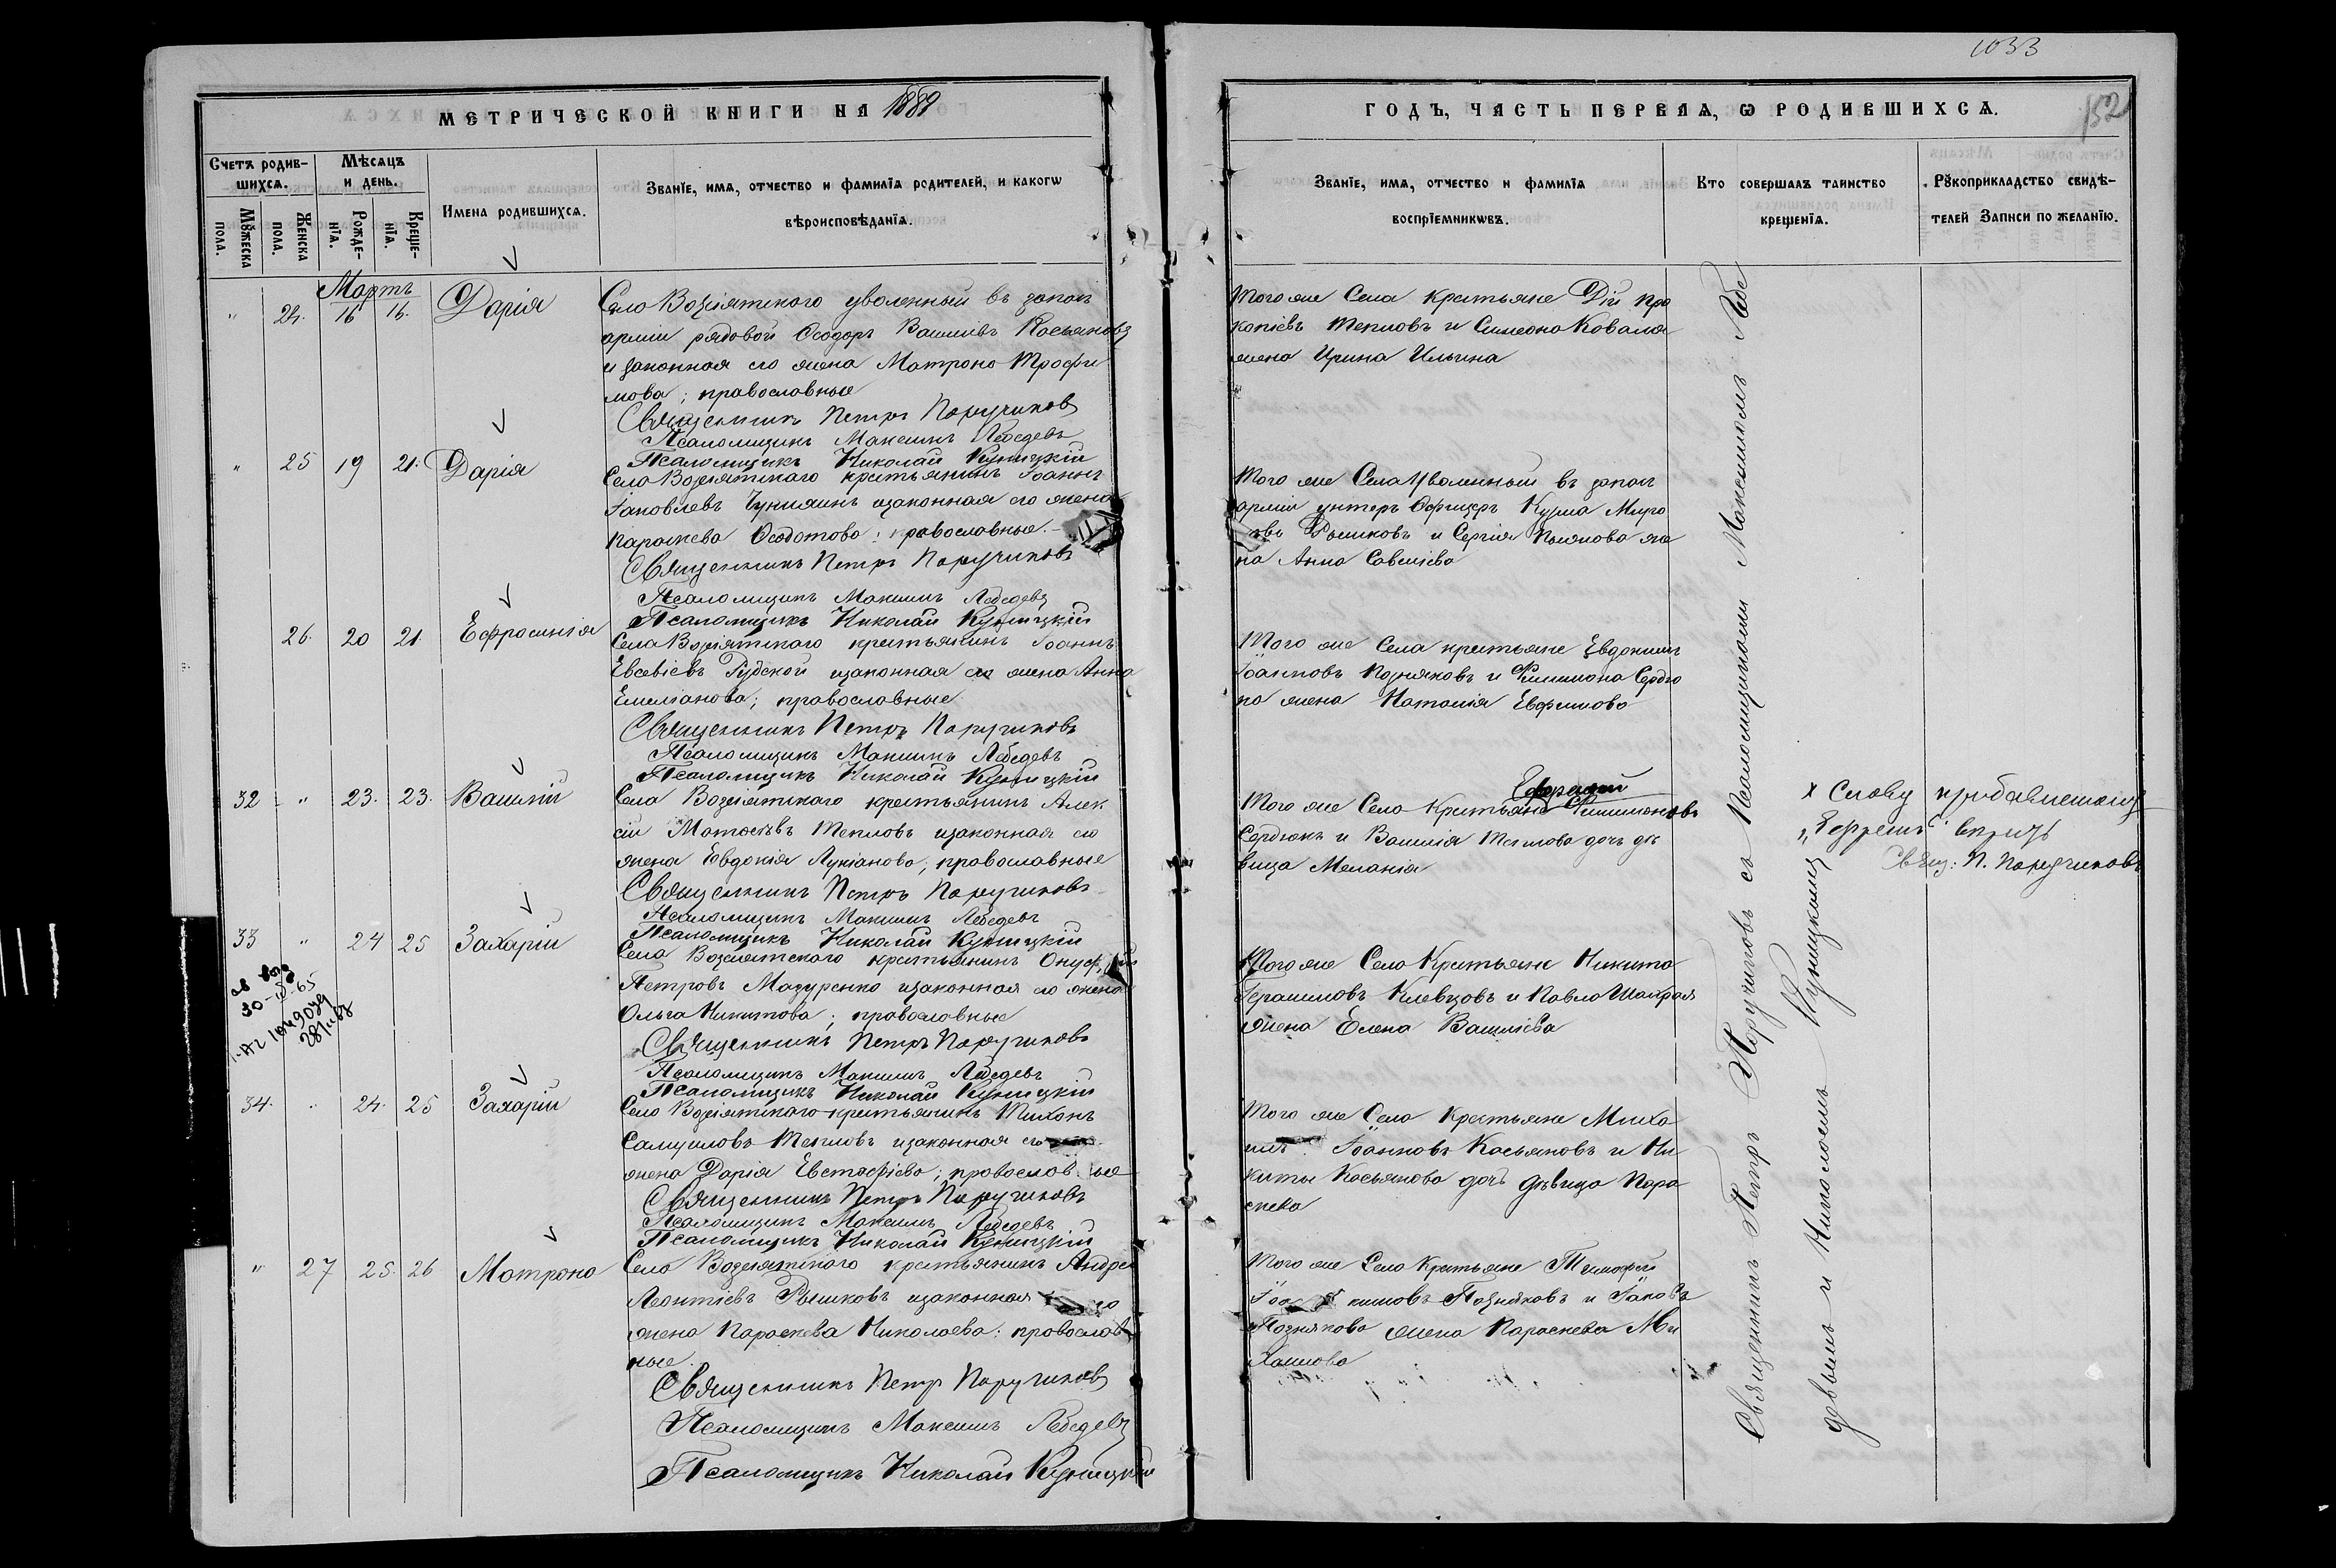 1033
152
МЕТРИЧЕСКОЙ КНИГИ НА 1889
ГОДЪ, ЧАСТЬ ПЕРВАЯ, Ѡ РОДИВШИХСѦ.
Счетъ родив-
шихсѧ.
Мѣсѧцъ
и день.
Мꙋжеска
пола.
Женска
пола.
Рожде-
нїѧ.
Креще-
нїѧ.
Имена родившихсѧ.
Званїе, имѧ, отчество и фамилїѧ родителей, и какогѡ
вѣроисповѣданїѧ.
Званїе, имѧ, отчество и фамилїѧ
воспрїемникѡвъ.
Кто совершалъ таинство
крещенїѧ.
Рꙋкоприкладство свидѣ-
телей Записи по желанїю.
Мартъ
" 24. 16 16. Дарія
Село Возсіятского уволенный въ запас
арміи рядовой Ѳеодоръ Васильевъ Касьяновъ
и законная его жена Матрона Трофи
мова; православные
Священникъ Петръ Поручиковъ
Псаломщикъ Максимъ Лебедевъ
Псаломщикъ Николай Куницкій
Того же Села крестьяне Дій Про
копіевъ Тепловъ и Симеона Коваля
жена Ирина Ильина
" 25 19 21. Дарія
Села Возсіятскаго крестьянинъ Іоаннъ
Іаковлевъ и законная его жена
Параскева Ѳеодотова; православные.
Священникъ Петръ Поручиковъ
Псаломщикъ Максимъ Лебедевъ
Псаломщикъ Николай Куницкій
Того же Села Уволенный въ запас
арміи унтеръ Офицеръ Кузма Миро
овъ Рышковъ и Сергія жe
на Анна Савеліева
26. 20 21. Ефросинія
Села Возсіятскаго крестьянинъ Іоаннъ
Евсевіевъ Рудской и законная его жена Анна
Емеліанова; православные
Священникъ Петръ Поручиковъ
Псаломщикъ Максимъ Лебедевъ
Псаломщикъ Николай Куницкій
Того же Села крестьяне Евдокимъ
Іоанновъ Позняковъ и Филимона Сердю
ка жена Наталія Евфимова
32 " 23. 23. Василій
Села Возсіятскаго крестьянинъ Алек
сій Матѳеевъ Тепловъ и законная его
жена Евдокія Лукіанова; православные
Священникъ Петръ Поручиковъ
Псаломщикъ Максимъ Лебедевъ
Псаломщикъ Николай Куницкій
Ефремъ
Того же Села Крестьяне Филимоновъ
Сердюкъ и Василія Теплова дочь дѣ
вица Меланія
х Слову прибавленному
„Ефремъ" вѣрить
Свящ: П. Поручиковъ
33 " 24 25 Захарій
Села Возсіятскаго крестьянинъ Онуфрій
Петровъ Мазуренко и законная его жена
Ольга Никитова; православные
Священникъ Петръ Поручиковъ
Псаломщикъ Максимъ Лебедевъ
Псаломщикъ Николай Куницкій
Того же Села Крестьяне Никита
Герасимовъ Клевцовъ и Павла Шахрая
жена Елена Василіева
34. " 24. 25 Захарій
Села Возсіятскаго крестьянинъ Тихонъ
Самуиловъ Тепловъ и законная его
жена Дарія Евстафіева; православные
Священникъ Петръ Поручиковъ
Псаломщикъ Максимъ Лебедевъ
Псаломщикъ Николай Куницкій
Того же Села Крестьяне Миха
илъ Іоанновъ Касьяновъ и Ни
киты Касьянова дочь дѣвица Пара
скева
" 27 25. 26 Матрона
Села Возсіятскаго крестьянинъ Андрей
Леонтіевъ Рышковъ и законная его
жена Параскева Николаева; православ
ные.
Священникъ Петръ Поручиковъ
Псаломщикъ Максимъ Лебедевъ
Псаломщикъ Николай Куницкій
Того же Села Крестьяне Тимофей
Іоакимовъ Позняковъ и Іакова
Познякова жена Параскева Ми
хаилова
Священникъ Петръ Поручиковъ съ Псаломщиками Максимомъ Лебе
девымъ и Николаемъ Куницкимъ